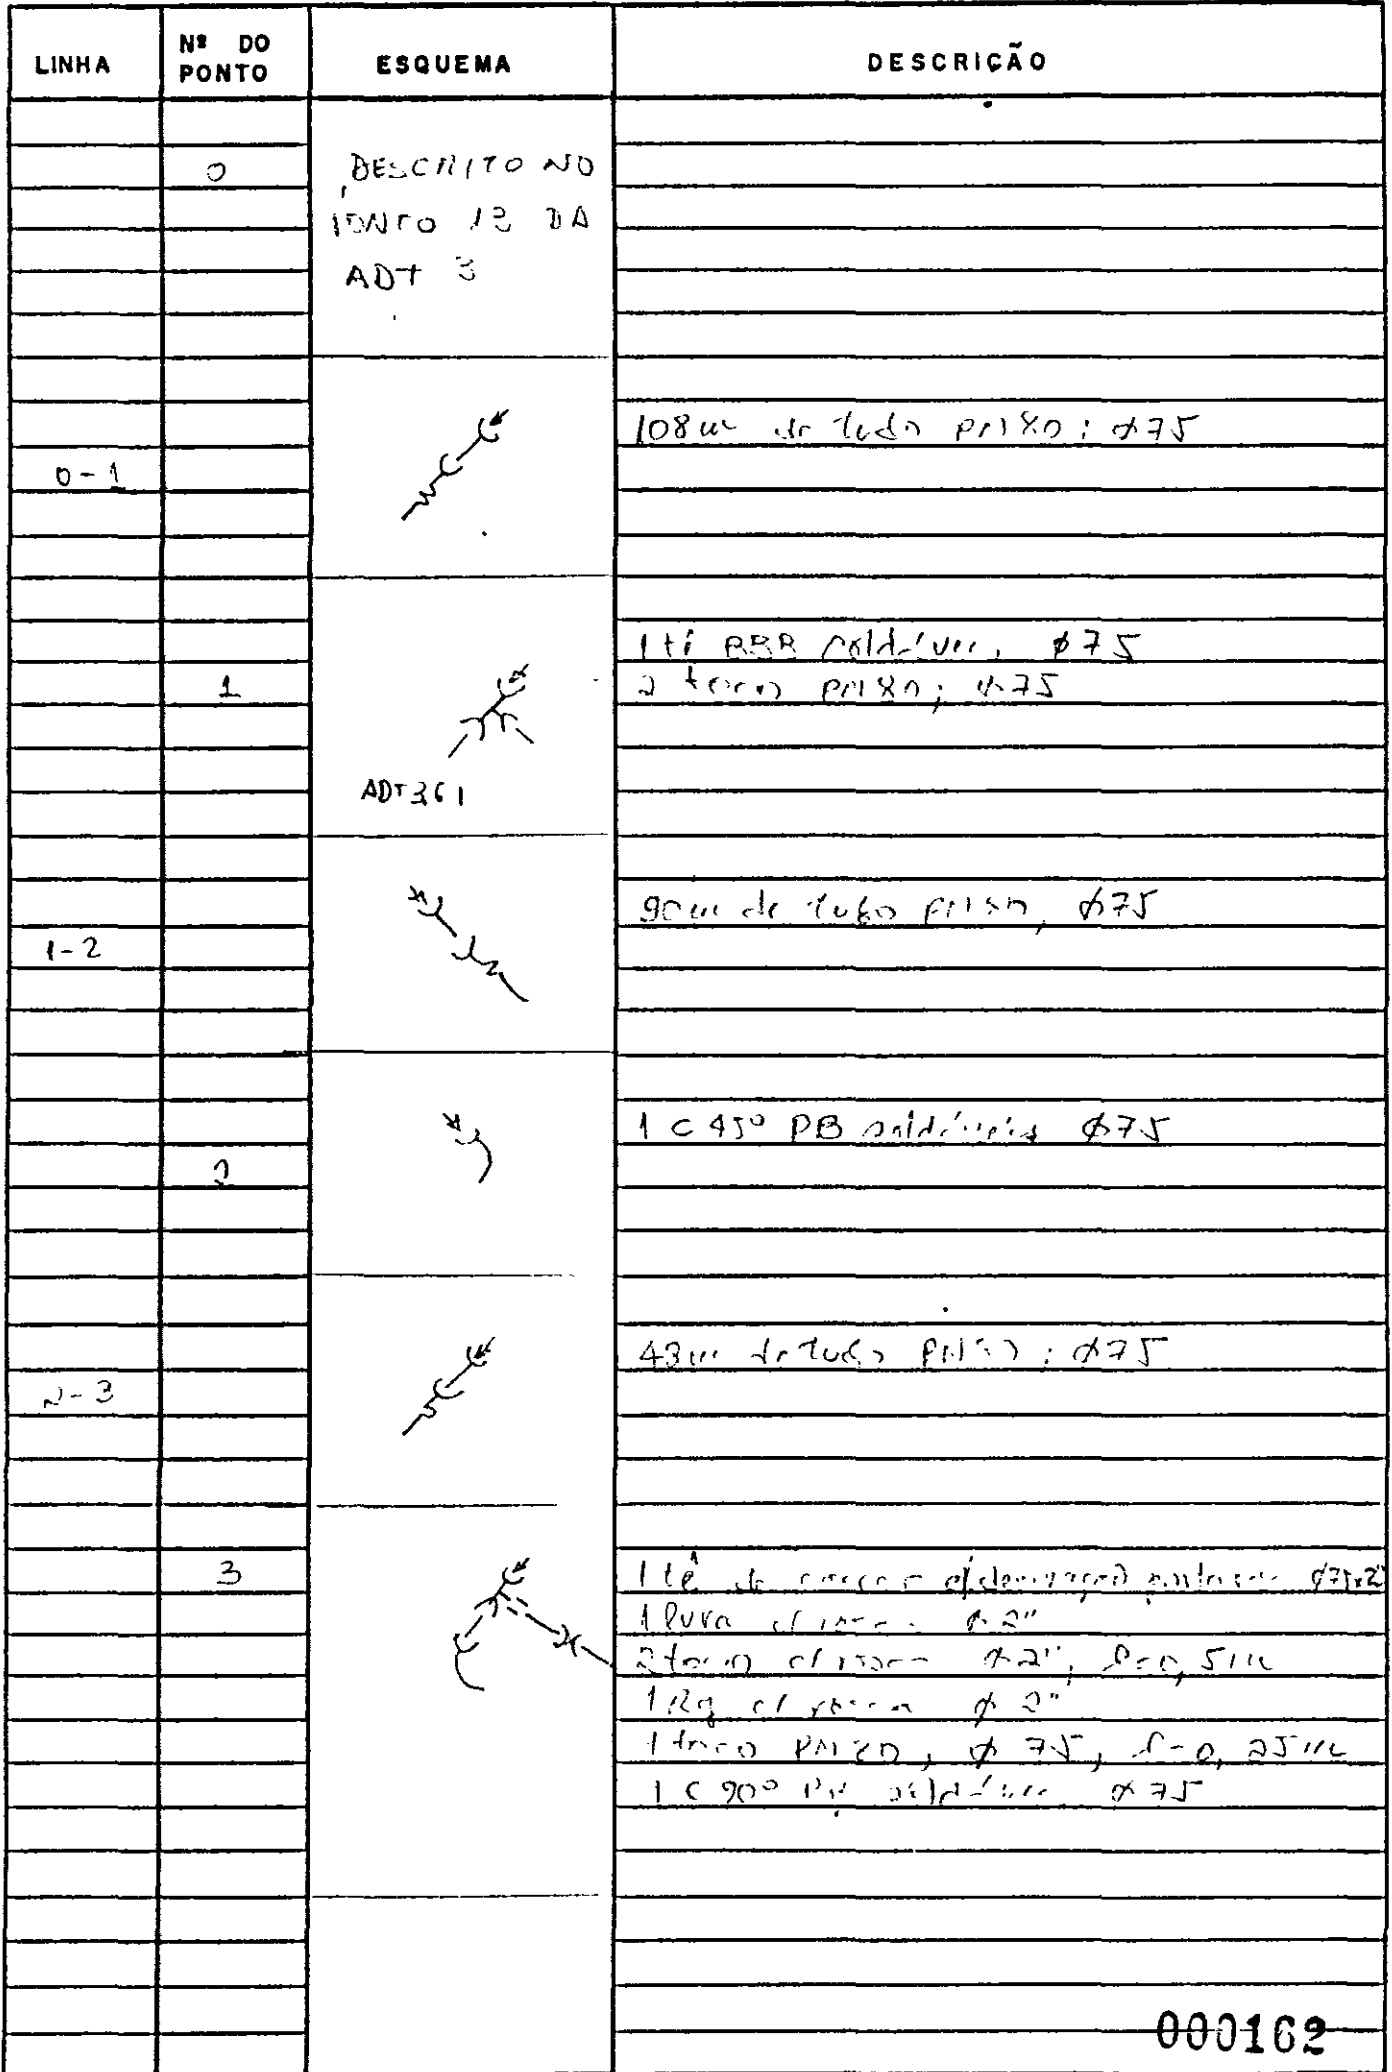 LINHA
Nº DO
PONTO
ESQUEMA
DESCRIÇÃO
0
DESCRITO NO
PONTO 13 DA
ADT 3
0-1
108m de tubo ; ø75
1
1 tê BBB soldável, ø75
2 toco ; ø75
ADT 361
1-2
90m de tubo , ø75
2
1 C 45° PB soldável ø75
2-3
43m de tubo ; ø75
3
1 tê de derivação ø75x2"
1 luva c/ rosca ø2"
2 toco c/ rosca ø2", l=0,51m
1 Rg c/ rosca ø2"
1 toco , ø75, l=0,25m
1 C 90° PB soldável ø75
000162